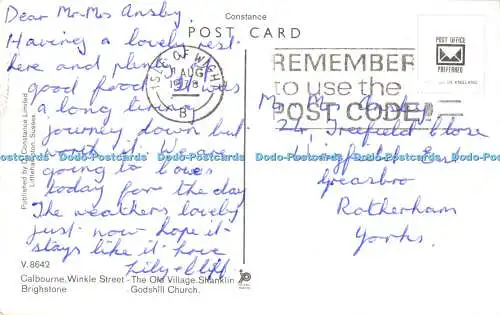 Constance
POST CARD
Dear Mr Mrs Ansby.
Having a lovely rest
here and plenty
good food. It was
a long tiring
journey down but
worth it. We are
going to
today for the day
The weathers lovely
just now hope it
stays like it. love
Lily & Cliff
ISLE OF WIGHT
AUG
1978
B
REMEMBER
to use the
POST CODE
POST OFFICE
PREFERRED
Mr Mrs
24, Treefield Close
Greasbro
Rotherham
Yorks.
Published by Constance Limited
Littlehampton, Sussex
Dodo-Postcards Dodo-Postcards Dodo-Postcards Dodo-Postcards Dodo-Postcards
V.8642
Calbourne, Winkle Street - The Old Village, Shanklin
Brighstone Godshill Church.